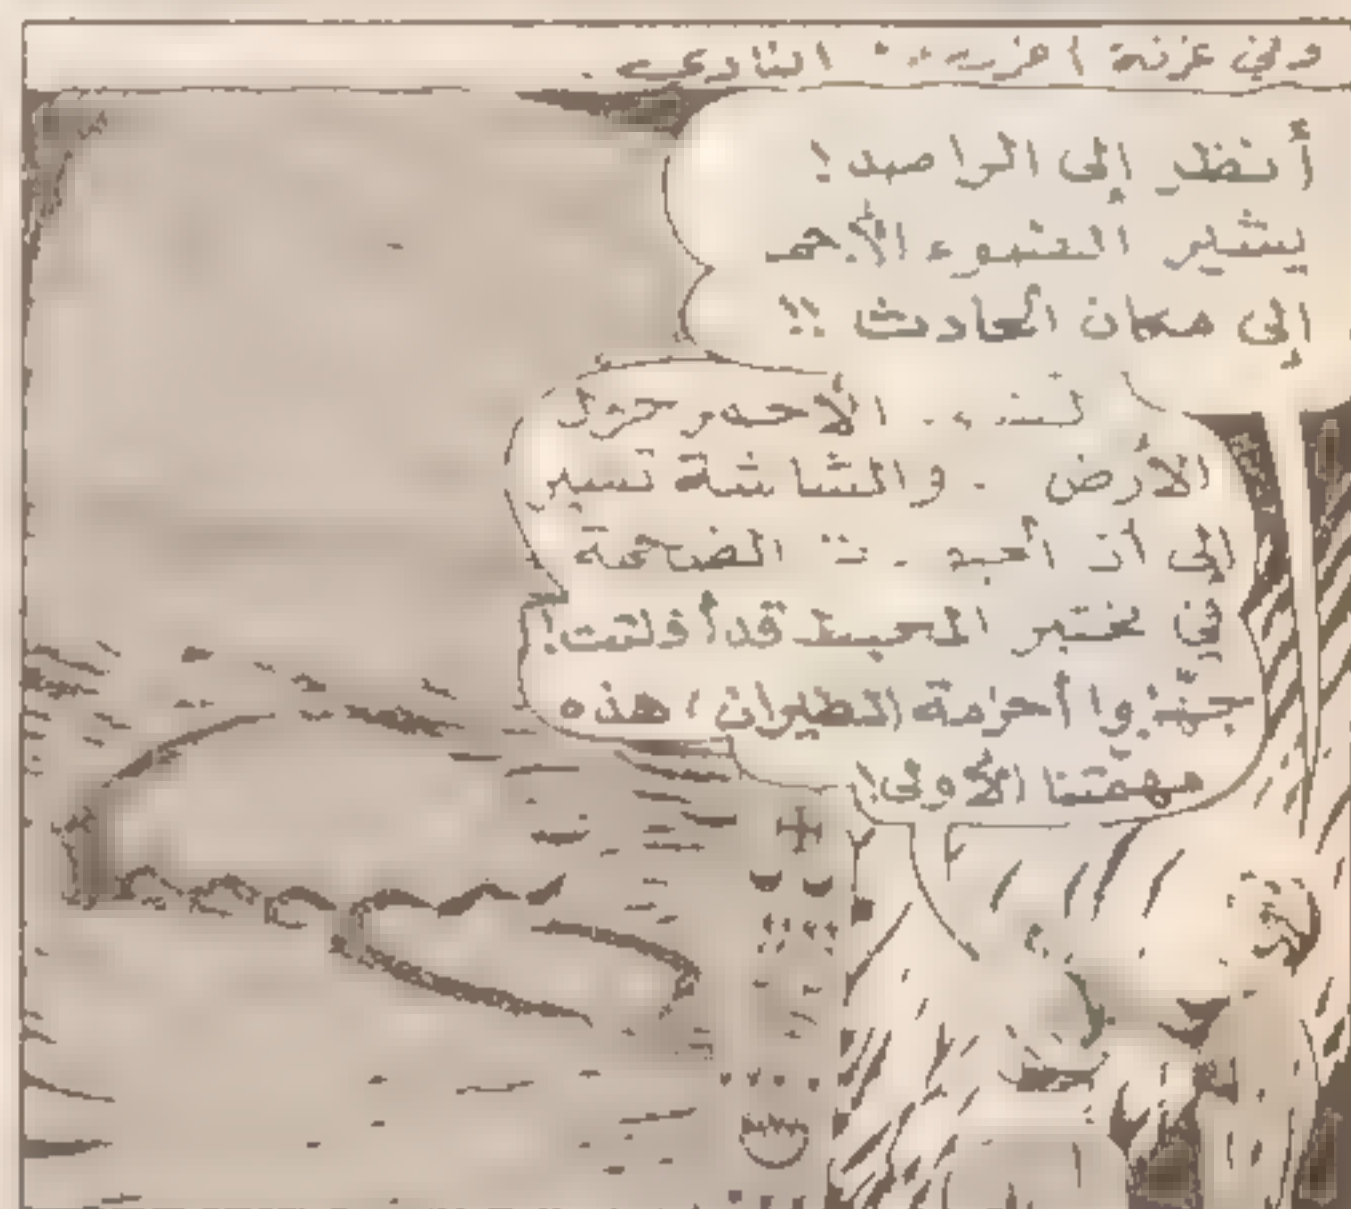 وفي غرفة النادي.
أنظر إلى الراصد!
يشير الضوء الأحمر
إلى مكان الحادث !!
الأحمر حول
الأرض والشاشة تسير
إلى أن الضخمة
في مختبر المحيط قد أفلتت!
جهّزوا أحزمة الطيران، هذه
مهمّتنا الأولى!